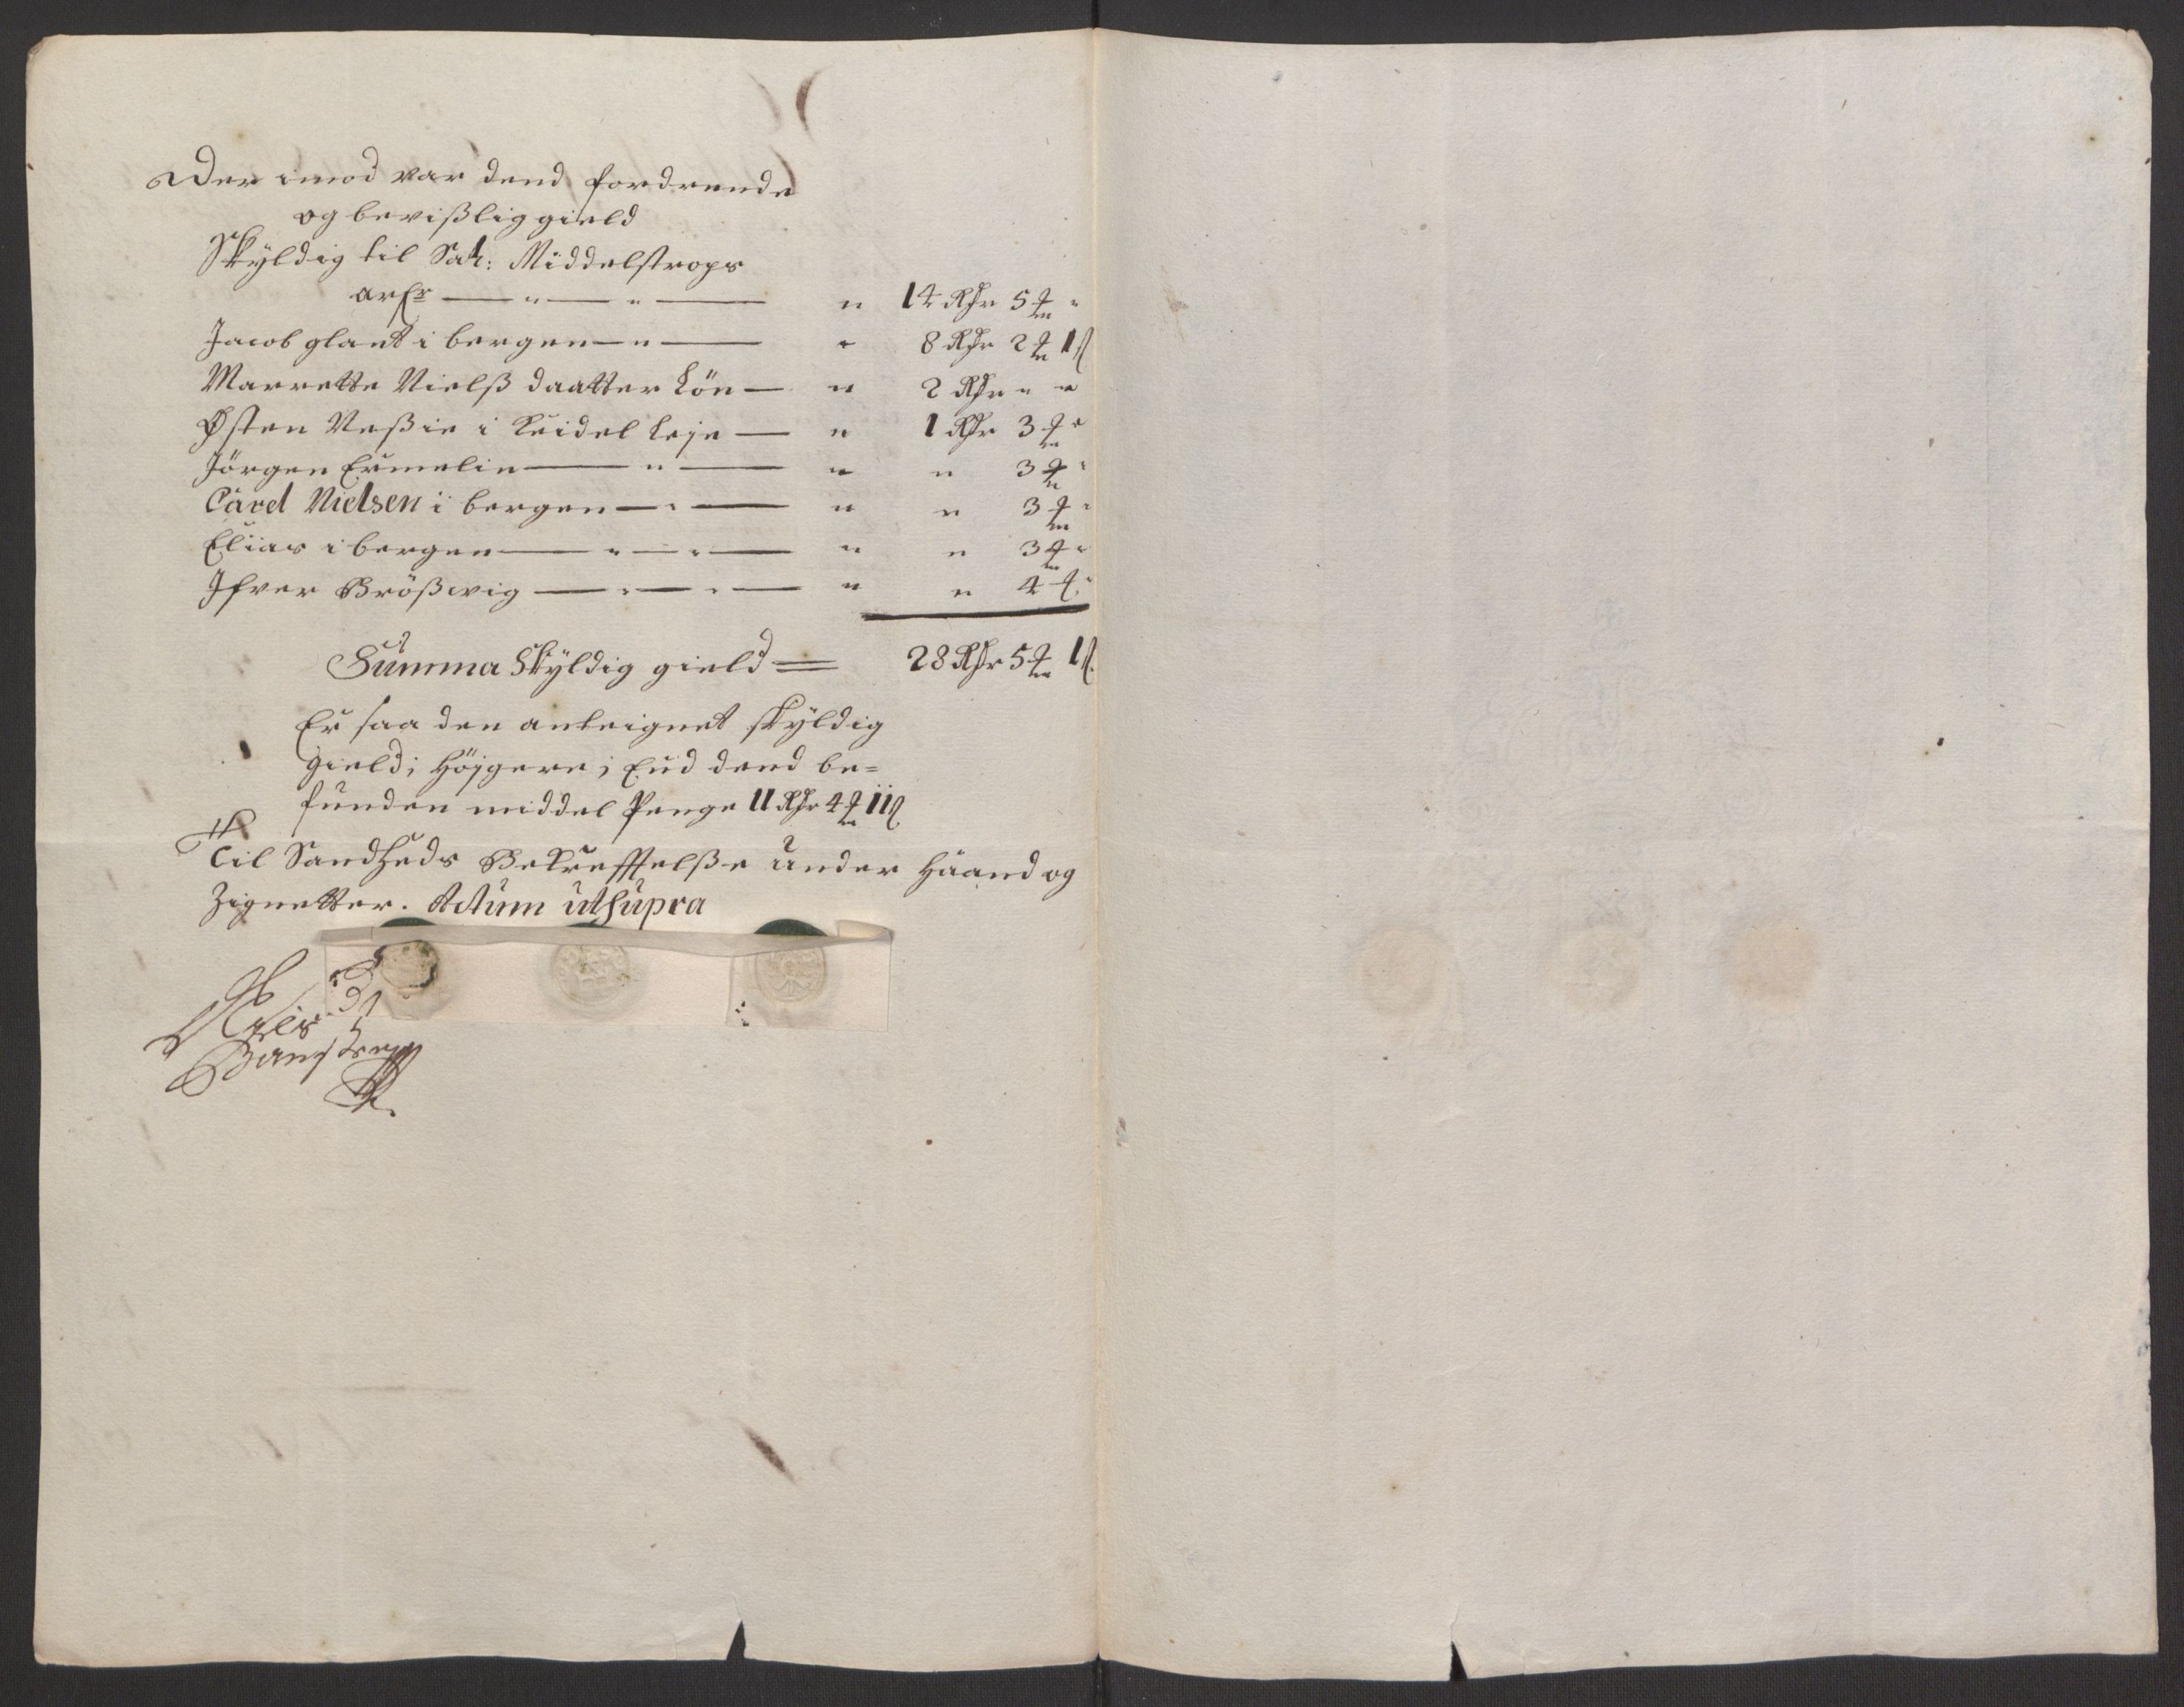 Der imod var dend fordrende
og bevißlig gield
Skÿldig til Sal: Middelstrops
arfr — " — " — " 14 Rdr 5 ₥ "
Jacob glant i bergen — " — " 8 Rdr 2 ₥ 1 ß
Marrette Nielß daatter Lön — " 2 Rdr " "
Østen Neßie i Leidel Leje — " 1 Rdr 3 ₥ "
Jörgen Ermelin — " — " " 3 ₥ "
Carel Nielsen i bergen — " — " " 3 ₥ "
Elias i bergen — " — " — " " 3 ₥ "
Ifver Brößwig — " — " — " " 4 ß
Summa Skÿldig gield = 28 Rdr 5 ₥ 1 ß.
Er saa den anteignet skÿldig
gield; Höjgere; End dend be=
funden middel Penge 11 Rdr 4 ₥ 11 ß
Til Sandheds Bekrefftelße under Haand og
Zignetter. Actum utsupra
Nels